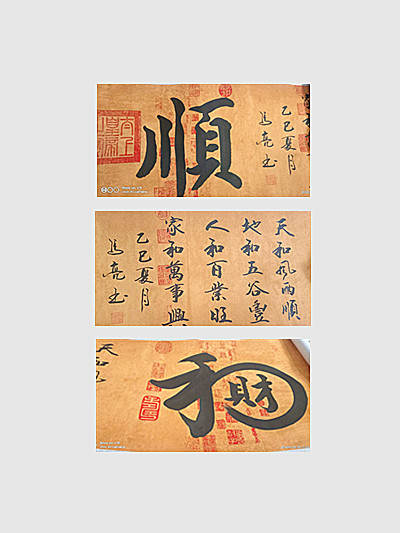 乙巳夏月
马亮书
順
天和风雨順
地和五谷豐
人和百業旺
家和萬事興
乙巳夏月
马亮书
和財